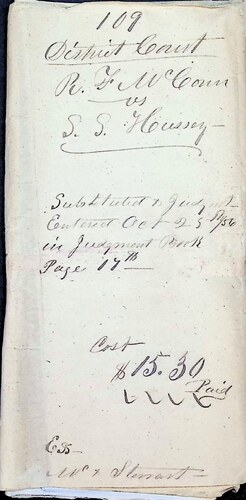 109
District Court
R. F. McConn
vs
S. S. Hussey
Substituted & Judgmt
Entered Oct 25th/56
in Judgment Book
Page 17th
Cost
$15.30
Paid
Mc & Stewart